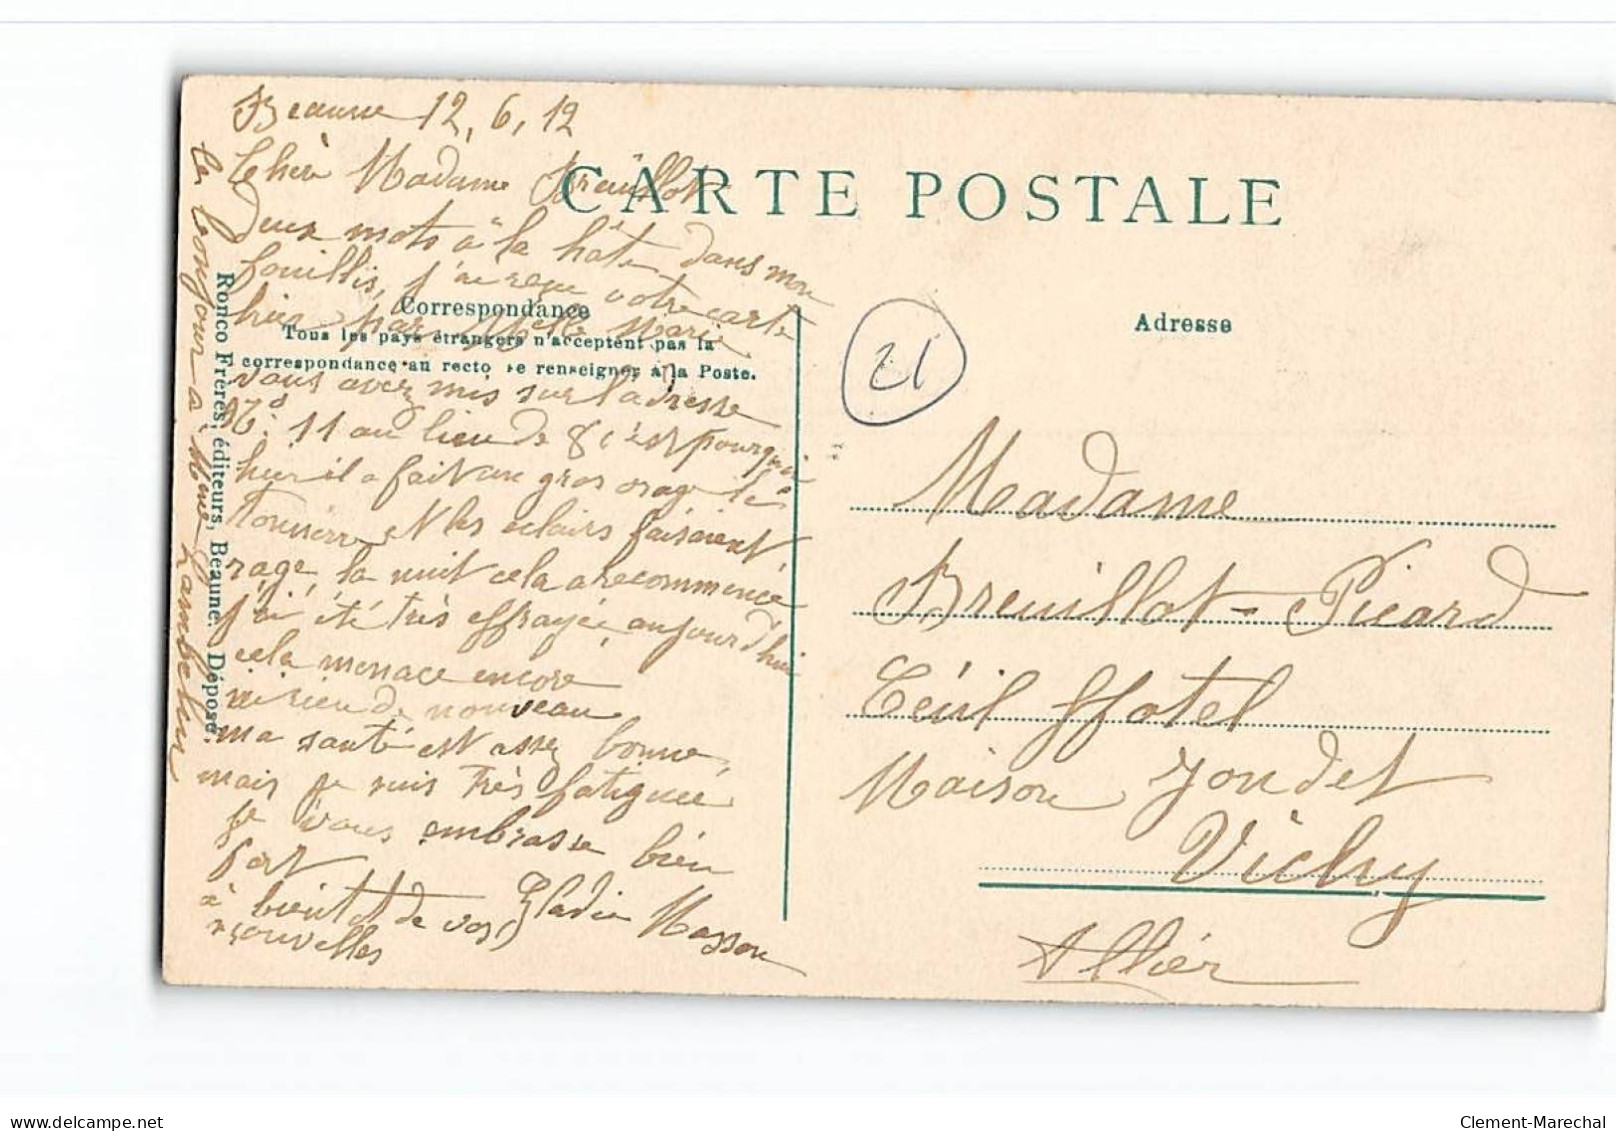 Beaune 12, 6, 12
Chère Madame Breuillot
Deux mots à la hâte dans mon
fouillis, j'ai reçu votre carte
hier par Melle Marie
vous avez mis sur l'adresse
No. 11 au lieu de 8 c'est pourquoi
hier il a fait un gros orage le
tonnerre et les éclairs faisaient
rage, la nuit cela a recommencé
j'ai été très effrayée, aujourd'hui
cela menace encore
ni rien de nouveau
ma santé est assez bonne,
mais je suis très fatiguée
je vous embrasse bien
fort
à bientot de vos
nouvelles
Masson
le bonjour à Mme
CARTE POSTALE
Correspondance
Tous les pays étrangers n'acceptent pas la
correspondance au recto se renseigner à la Poste.
Ronco Frères, éditeurs, Beaune. Déposé.
Adresse
21
Madame
Breuillot-Picard
Hotel
Maison
Vichy
Allier
www.delcampe.net
Clement-Marechal